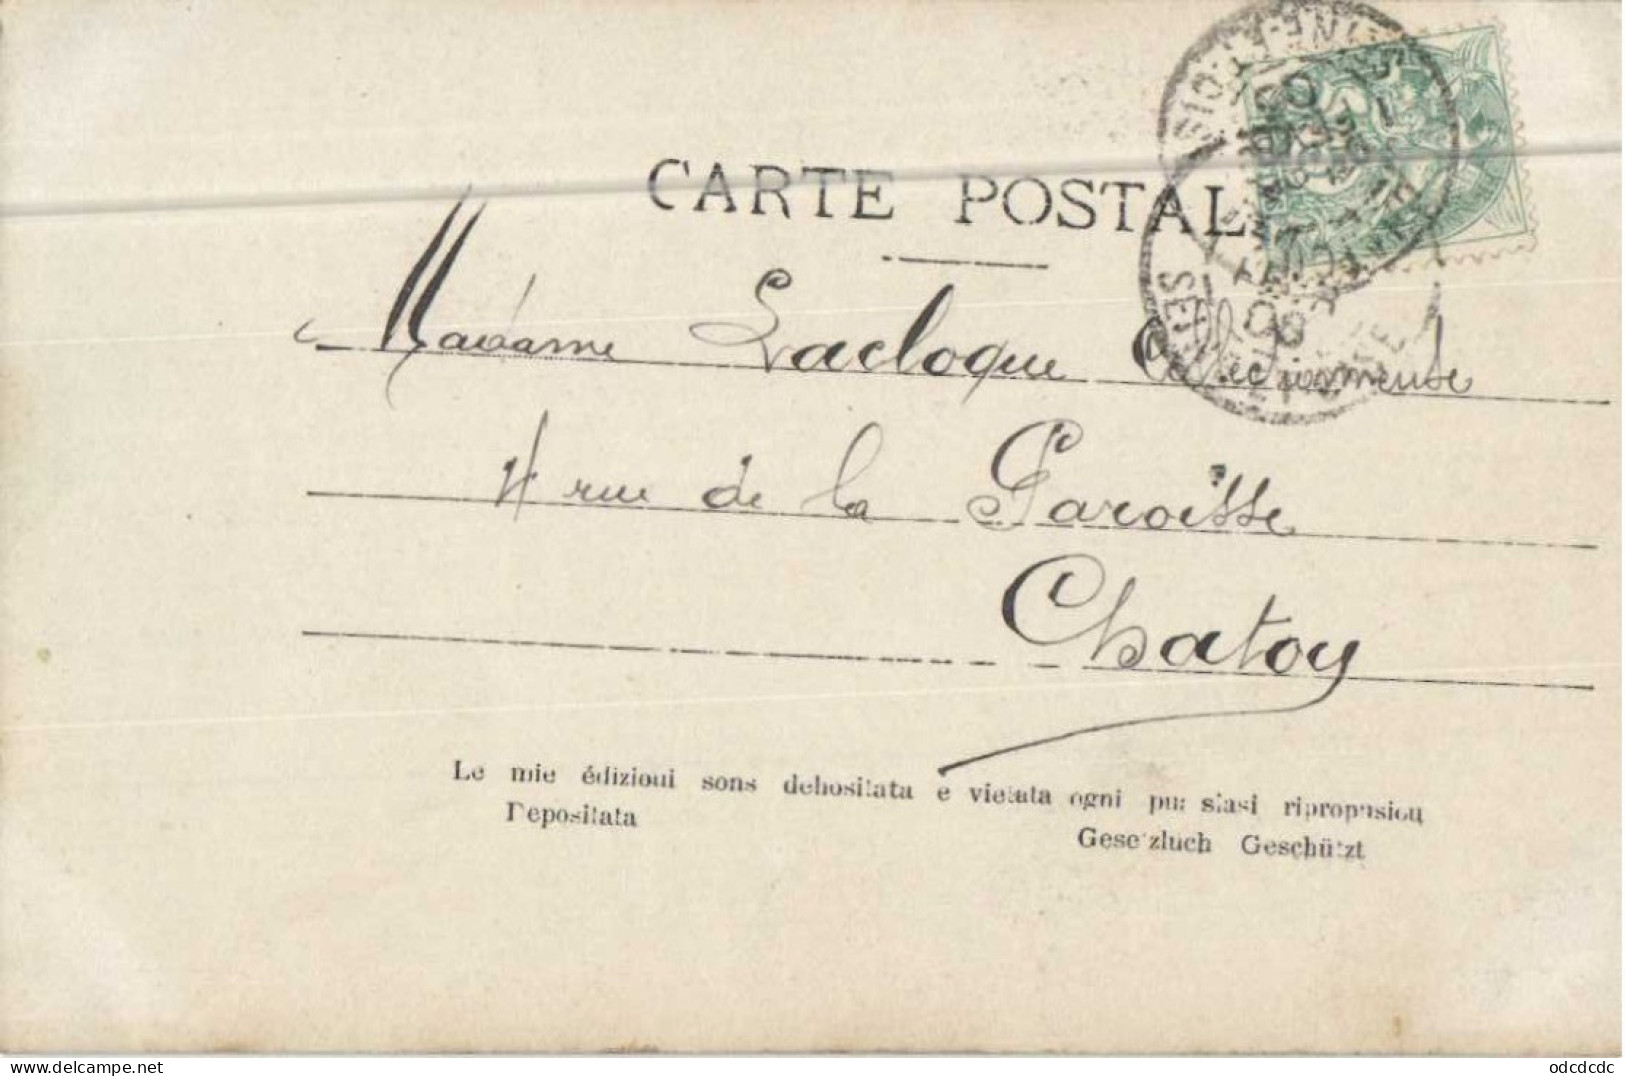 CARTE POSTAL
Madame Lacloque
4 rue de la Paroisse
Chatoy
Le mie édizioui sons dehositata e vietata ogni pu: siasi ripropusiou
Depositata Gesetzluch Geschützt
SEINE-ET-OISE
SEI
odcdcdc
delcampe.net